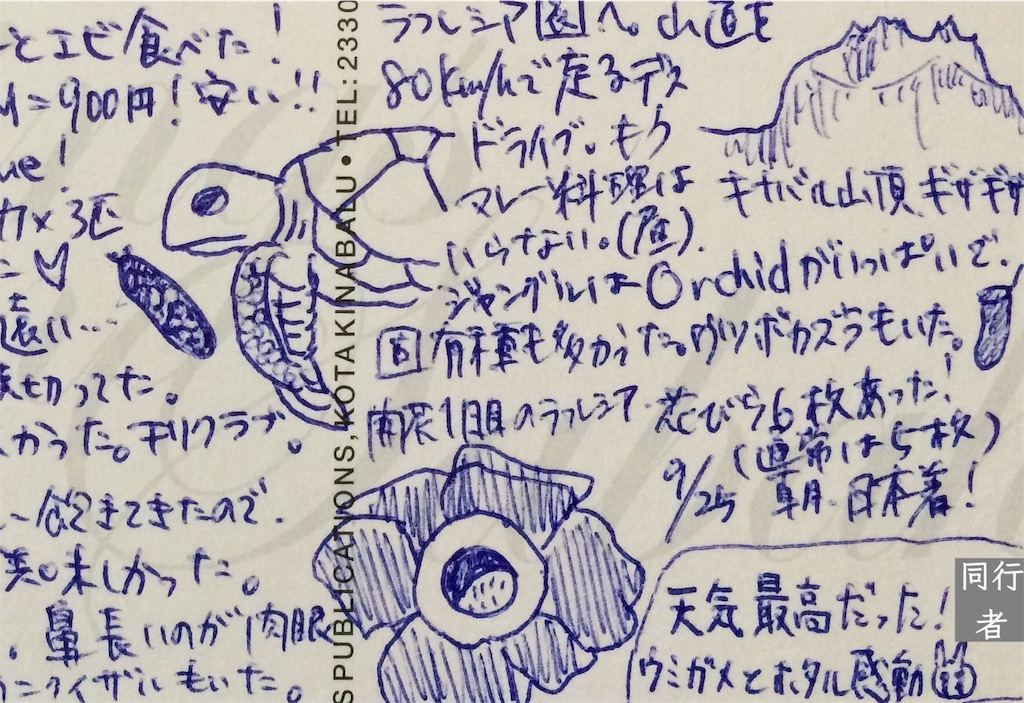 とエビ食べた!
=900円!安い!!
ue!
カメ3匹
遠い…
切ってた。
かった。チリクラブ。
飽きてきたので、
美味しかった。
鼻長いのが肉眼
もいた。
S PUBLICATIONS, KOTA KINABALU • TEL: 2330
ラフレシア園へ。山道を
80km/hで走るデス
ドライブ。もう
マレー料理は
いらない。(昼).
ジャングルはOrchidがいっぱいで、
固有種も多かった。ウツボカズラもいた。
肉眼1日目のラフレシア 花びら6枚あった!
(通常は5枚)
9/25 朝 日本着!
キナバル山頂ギザギザ
天気最高だった!
ウミガメとホタル感動
同行
者